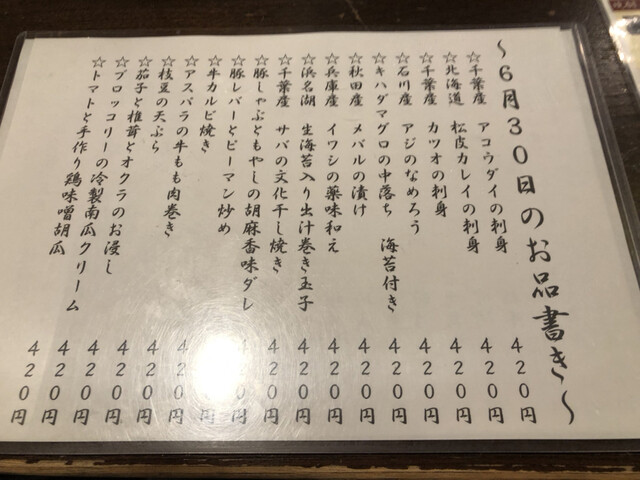 ～6月30日のお品書き～
☆千葉産 アコウダイの刺身 420円
☆北海道 松皮カレイの刺身 420円
☆千葉産 カツオの刺身 420円
☆石川産 アジのなめろう 420円
☆キハダマグロの中落ち 海苔付き 420円
☆秋田産 メバルの漬け 420円
☆兵庫産 イワシの薬味和え 420円
☆浜名湖 生海苔入り出汁巻き玉子 420円
☆千葉産 サバの文化干し焼き 420円
☆豚しゃぶともやしの胡麻香味ダレ 420円
☆豚レバーとピーマン炒め 420円
☆牛カルビ焼き 420円
☆アスパラの牛もも肉巻き 420円
☆枝豆の天ぷら 420円
☆茄子と椎茸とオクラのお浸し 420円
☆ブロッコリーの冷製南瓜クリーム 420円
☆トマトと手作り鶏味噌胡瓜 420円